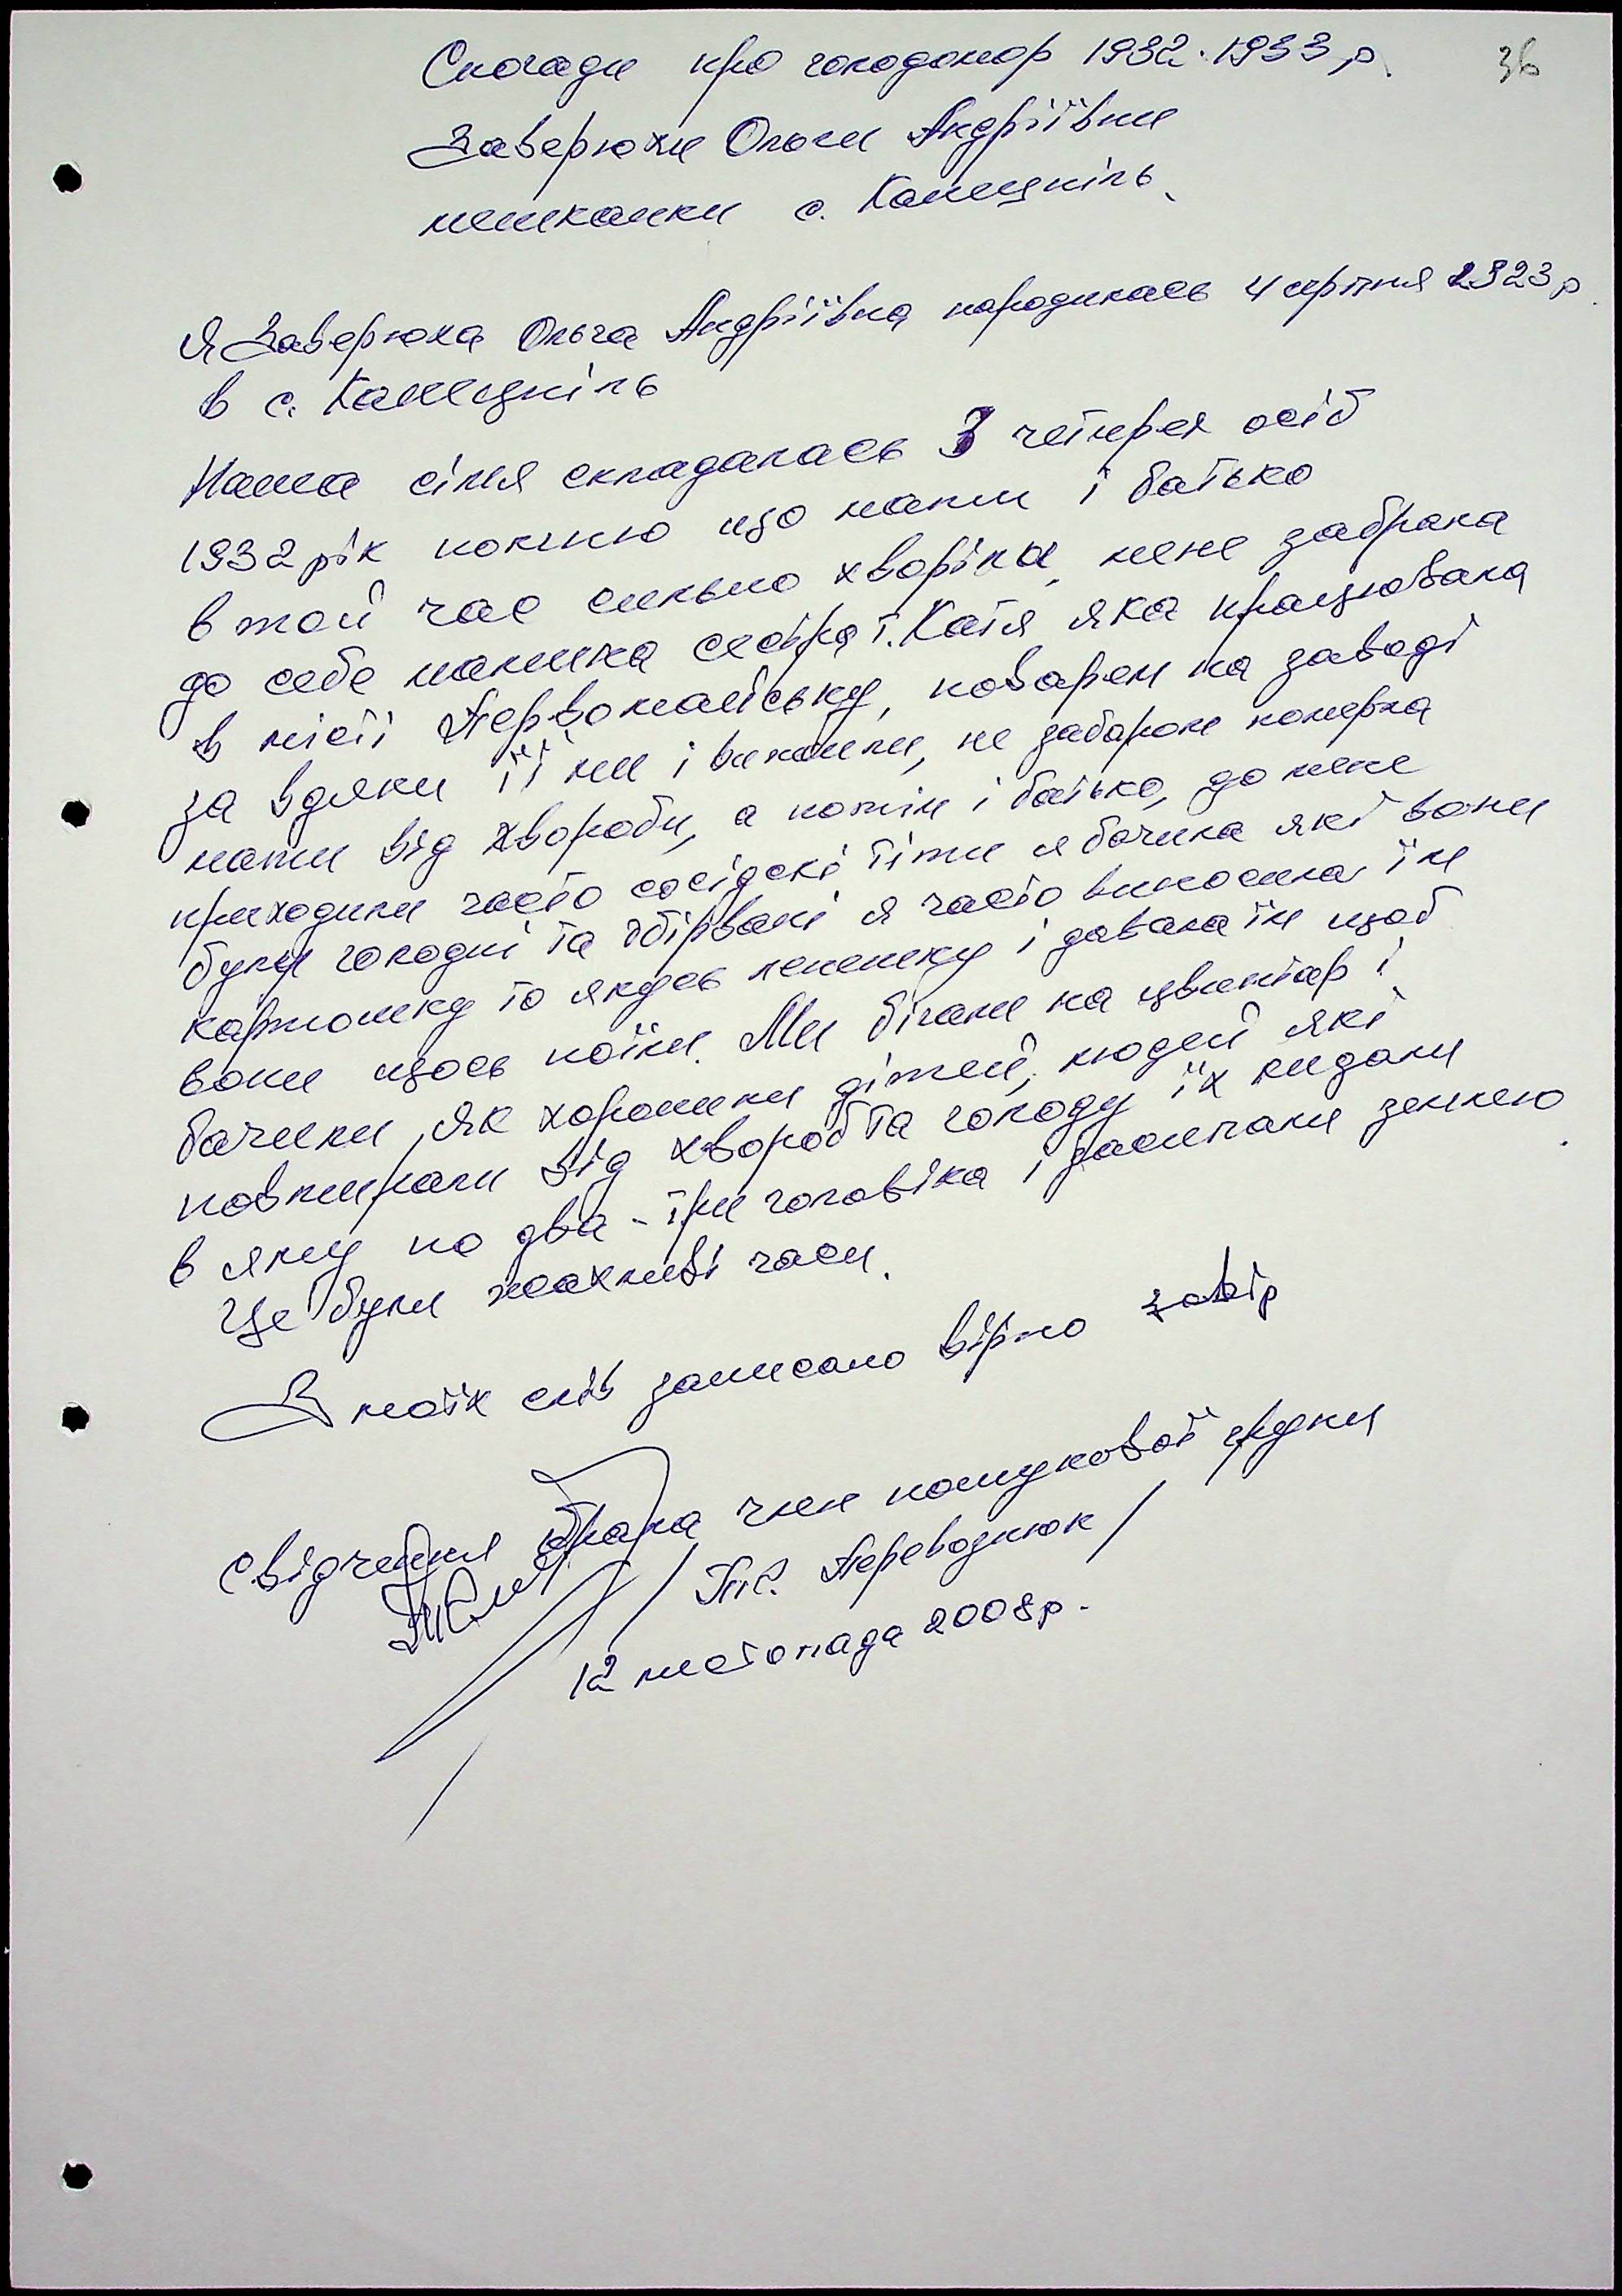 Спогади про голодомор 1932-1933 р.
36
Заверюхи Ольги Андріївни
мешканки с. Камецпіль.
Я Заверюха Ольга Андріївна народилась 4 серпня 1923 р.
в с. Камецпіль
Наша сімя складалась З чотирех осіб
1932 рік помню що мати і батько
в той час сильно хворіли, мене забрала
до себе мамина сестра т. Катя яка працювала
в місті Первомайську, поваром на заводі
за вдяки її ми і вижили, не забаром померла
мати від хвороби, а потім і батько, до мене
приходили часто сосідскі діти я бачила які вони
були голодні та обірвані я часто виносила їм
картошку то якусь лепешку і давала їм щоб
вони щось поїли. Ми бігали на цвинтар і
бачили, як хоронили дітей, людей які
повмирали від хвороб та голоду їх кидали
в яму по два-три чоловіка і засипали землею.
Це були жахливі часи.
З моїх слів записано вірно завір
свідчення брала член пошукової групи
/ Т.С. Переводнюк /
12 листопада 2008р.